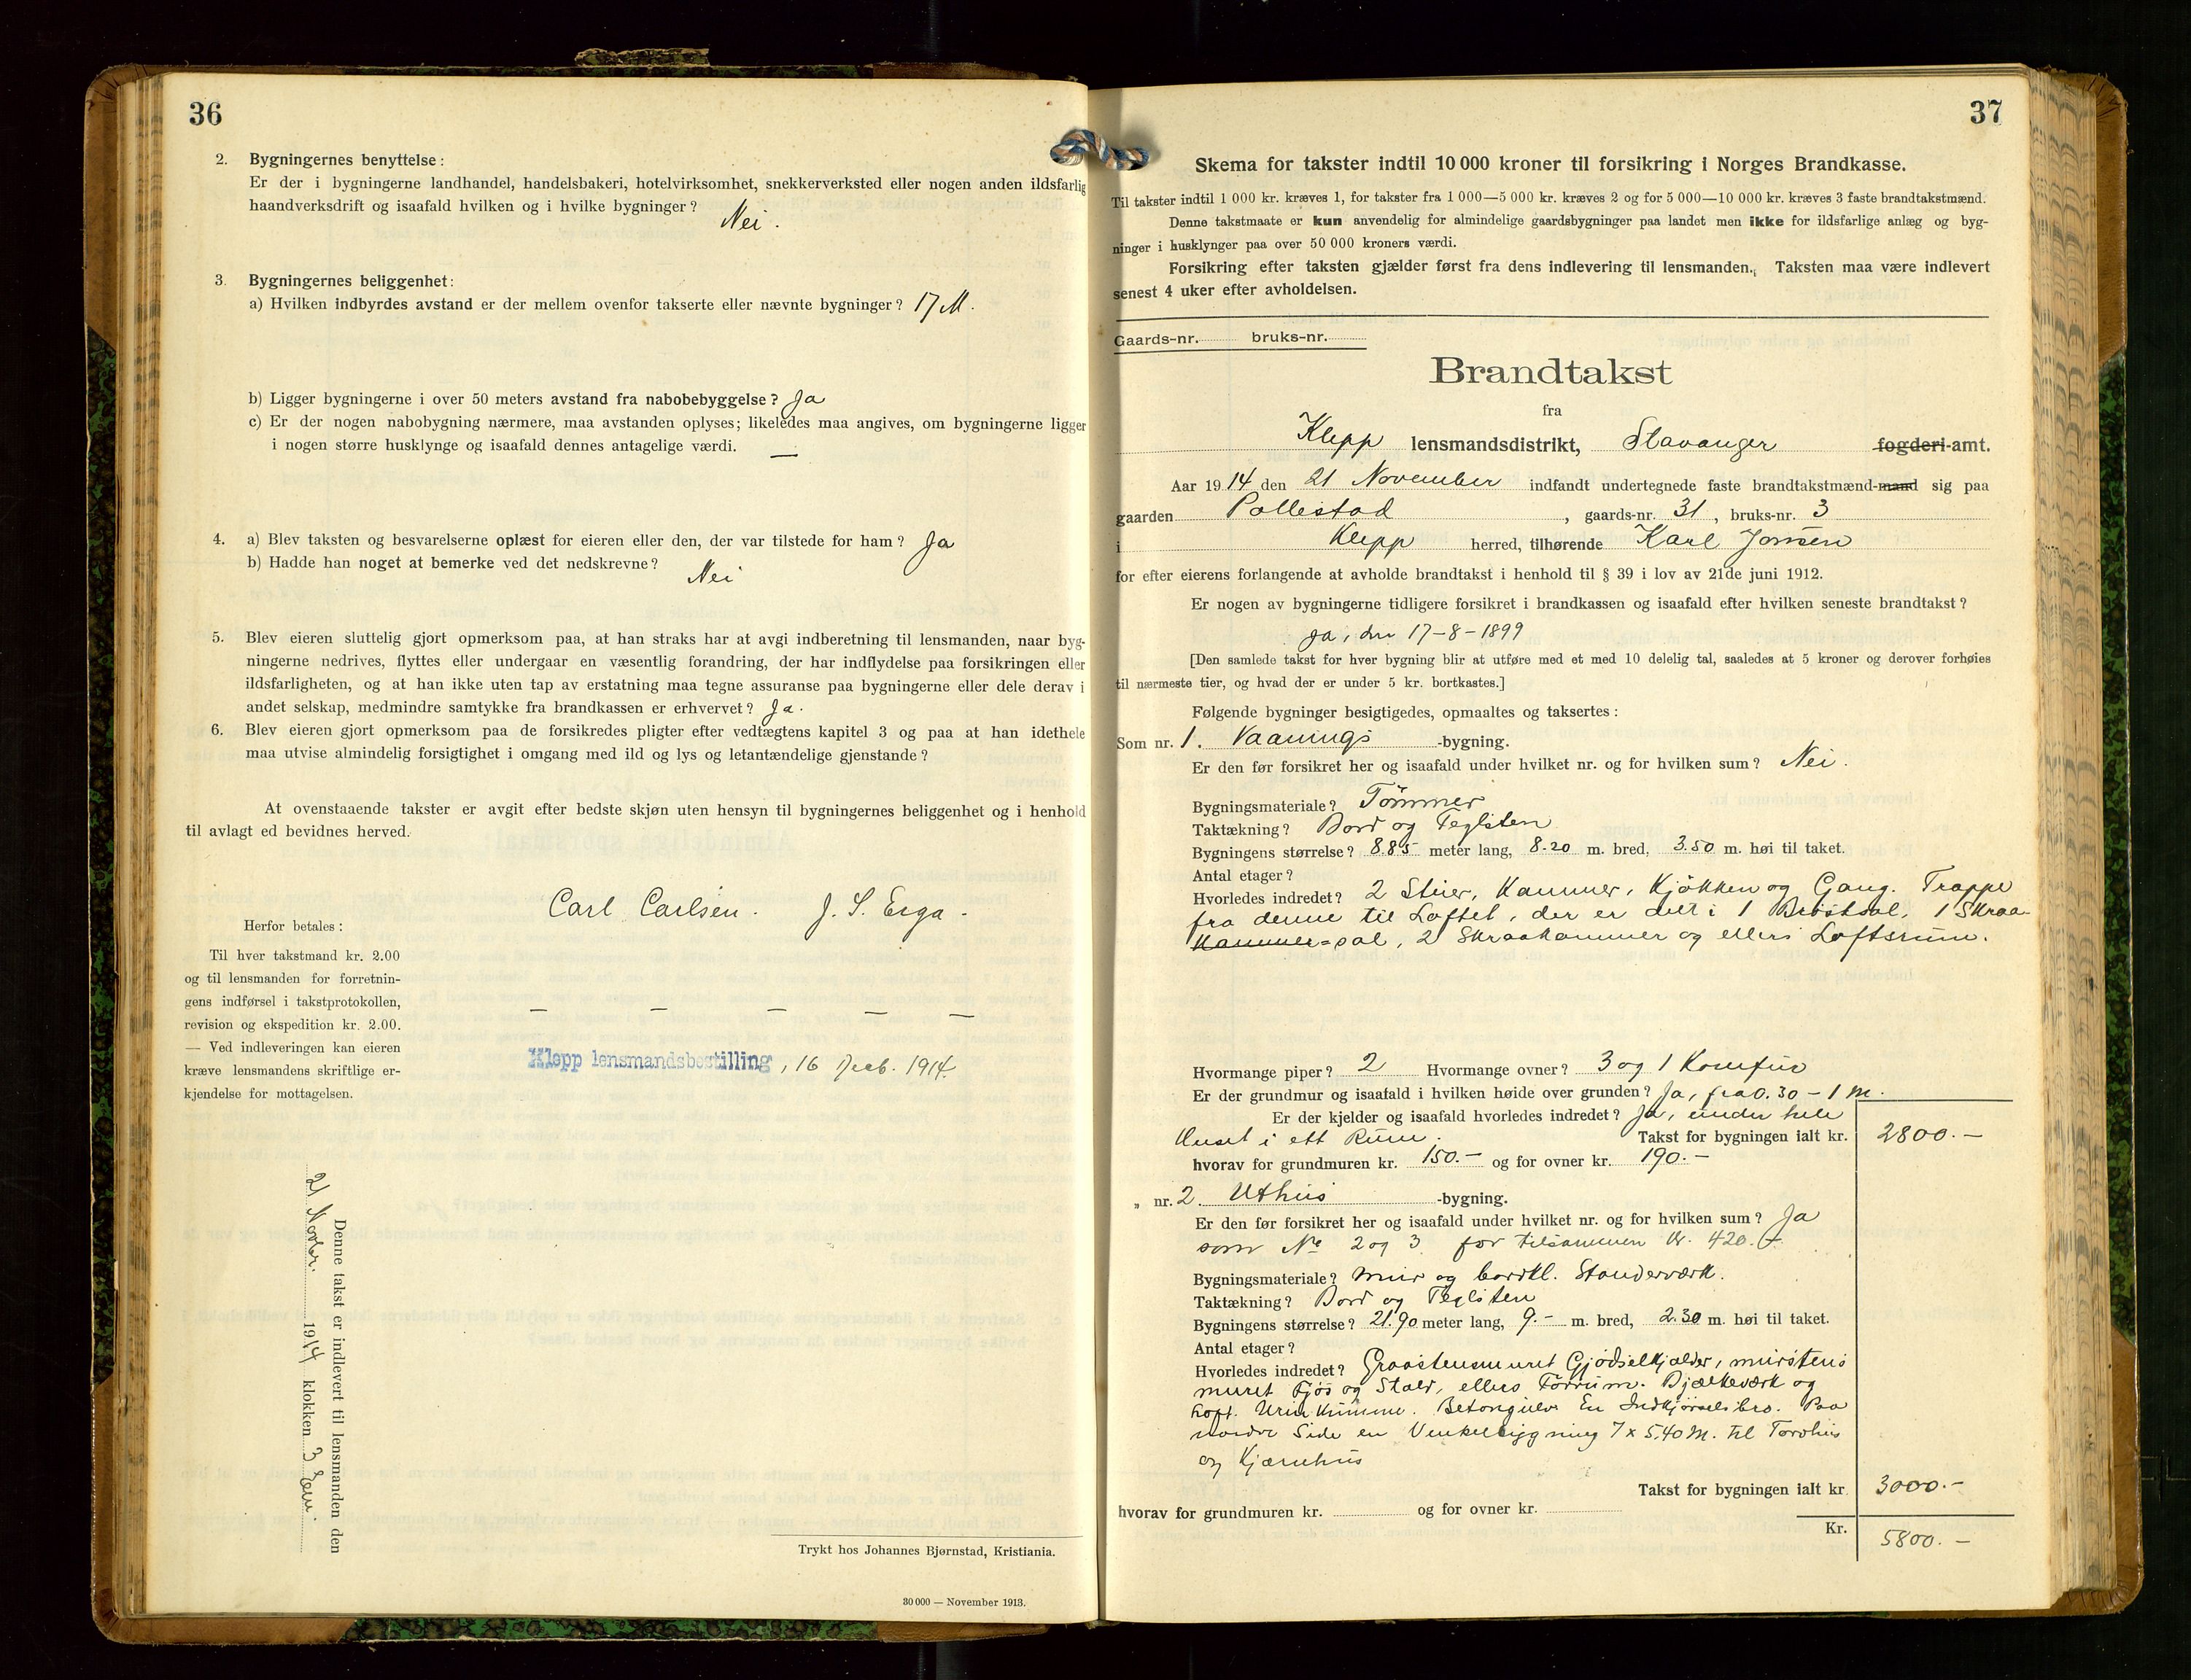 36
2. Bygningernes benyttelse:
Er der i bygningerne landhandel, handelsbakeri, hotelvirksomhet, snekkerverksted eller nogen anden ildsfarlig
haandverksdrift og isaafald hvilken og i hvilke bygninger? Nei.
3. Bygningernes beliggenhet:
a) Hvilken indbyrdes avstand er der mellem ovenfor takserte eller nævnte bygninger? 17 M.
b) Ligger bygningerne i over 50 meters avstand fra nabobebyggelse? Ja
c) Er der nogen nabobygning nærmere, maa avstanden oplyses; likeledes maa angives, om bygningerne ligger
i nogen større husklynge og isaafald dennes antagelige værdi. —
4. a) Blev taksten og besvarelserne oplæst for eieren eller den, der var tilstede for ham? Ja
b) Hadde han noget at bemerke ved det nedskrevne? Nei
5. Blev eieren sluttelig gjort opmerksom paa, at han straks har at avgi indberetning til lensmanden, naar byg-
ningerne nedrives, flyttes eller undergaar en væsentlig forandring, der har indflydelse paa forsikringen eller
ildsfarligheten, og at han ikke uten tap av erstatning maa tegne assuranse paa bygningerne eller dele derav i
andet selskap, medmindre samtykke fra brandkassen er erhvervet? Ja.
6. Blev eieren gjort opmerksom paa de forsikredes pligter efter vedtægtens kapitel 3 og paa at han idethele
maa utvise almindelig forsigtighet i omgang med ild og lys og letantændelige gjenstande?
At ovenstaaende takster er avgit efter bedste skjøn uten hensyn til bygningernes beliggenhet og i henhold
til avlagt ed bevidnes herved.
Carl Carlsen. J. S. Erga.
Herfor betales:
Til hver takstmand kr. 2.00
og til lensmanden for forretnin-
gens indførsel i takstprotokollen,
revision og ekspedition kr. 2.00.
— Ved indleveringen kan eieren
kræve lensmandens skriftlige er-
kjendelse for mottagelsen.
— — — — —
Klepp lensmandsbestilling, 16 Decb. 1914.
Denne takst er indlevert til lensmanden den
21 Novbr. 1914 klokken 3 Em.
Trykt hos Johannes Bjørnstad, Kristiania.
30 000 — November 1913.
37
Skema for takster indtil 10 000 kroner til forsikring i Norges Brandkasse.
Til takster indtil 1 000 kr. kræves 1, for takster fra 1 000—5 000 kr. kræves 2 og for 5 000—10 000 kr. kræves 3 faste brandtakstmænd.
Denne takstmaate er kun anvendelig for almindelige gaardsbygninger paa landet men ikke for ildsfarlige anlæg og byg-
ninger i husklynger paa over 50 000 kroners værdi.
Forsikring efter taksten gjælder først fra dens indlevering til lensmanden. Taksten maa være indlevert
senest 4 uker efter avholdelsen.
Gaards-nr. bruks-nr.
Brandtakst
fra
Klepp lensmandsdistrikt, Stavanger fogderi-amt.
Aar 1914 den 21 November indfandt undertegnede faste brandtakstmænd-mand sig paa
gaarden Pollestad, gaards-nr. 31, bruks-nr. 3
i Klepp herred, tilhørende Karl Jonsen
for efter eierens forlangende at avholde brandtakst i henhold til § 39 i lov av 21de juni 1912.
Er nogen av bygningerne tidligere forsikret i brandkassen og isaafald efter hvilken seneste brandtakst?
Ja, den 17-8-1899
[Den samlede takst for hver bygning blir at utføre med et med 10 delelig tal, saaledes at 5 kroner og derover forhøies
til nærmeste tier, og hvad der er under 5 kr. bortkastes.]
Følgende bygninger besigtigedes, opmaaltes og taksertes:
Som nr. 1. Vaanings-bygning.
Er den før forsikret her og isaafald under hvilket nr. og for hvilken sum? Nei.
Bygningsmateriale? Tømmer
Taktækning? Bord og Teglsten
Bygningens størrelse? 8.85 meter lang, 8.20 m. bred, 3.50 m. høi til taket.
Antal etager?
Hvorledes indredet? 2 Stuer, Kammer, Kjøkken og Gang. Trappe
fra denne til Loftet, der er delt i 1 Bröstsal, 1 Skraa-
Kammer-sal, 2 Skraakammer og ellers Loftsrum.
Hvormange piper? 2 Hvormange ovner? 3 og 1 Komfur
Er der grundmur og isaafald i hvilken høide over grunden? Ja, fra 0.30 - 1 M.
Er der kjelder og isaafald hvorledes indredet? Ja, under hele
Huset i ett Rum. Takst for bygningen ialt kr. 2800.—
hvorav for grundmuren kr. 150.— og for ovner kr. 190.—
„ nr. 2 Uthus-bygning.
Er den før forsikret her og isaafald under hvilket nr. og for hvilken sum? Ja
som No 2 og 3 for tilsammen Kr. 420.—
Bygningsmateriale? Mur og bordkl. Standerværk.
Taktækning? Bord og Teglsten
Bygningens størrelse? 21.90 meter lang, 9.— m. bred, 2.30 m. høi til taket.
Antal etager?
Hvorledes indredet? Graastensmuret Gjødselkjælder, murstens
muret Fjøs og Stald, ellers Forrum. Bjælkeværk og
Loft. Urinkumme. Betongulv. En Indkjørselsbro. Paa
nordre Side en Vinkelbygning 7 x 5,40 M. til Torvhus
og Kjærnhus
Takst for bygningen ialt kr 3000.—
hvorav for grundmuren kr. og for ovner kr.
Kr. 5800.—